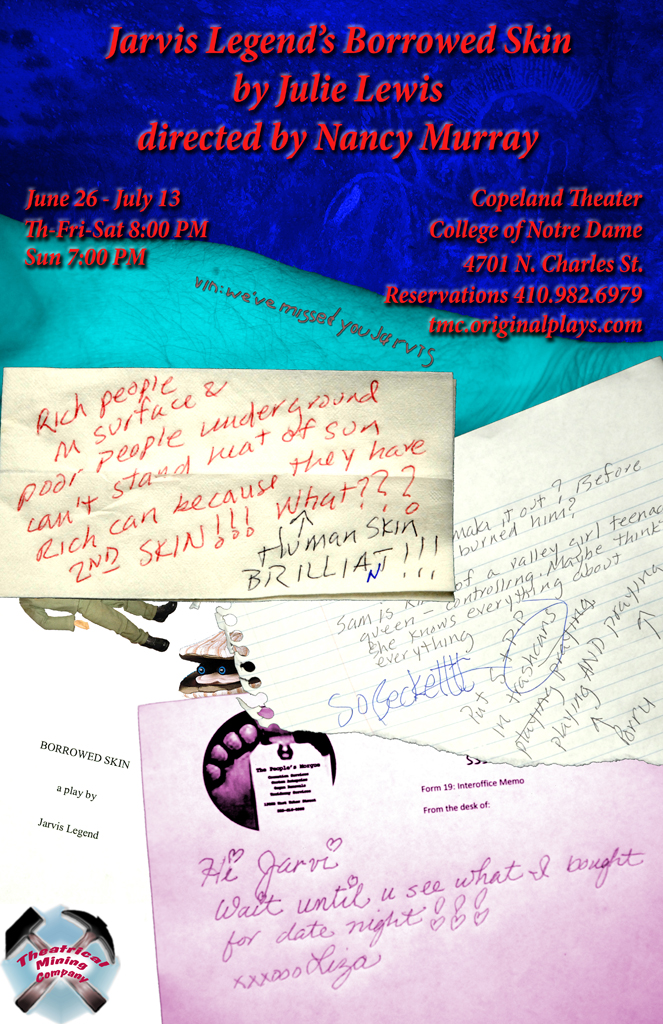 Jarvis Legend's Borrowed Skin
by Julie Lewis
directed by Nancy Murray
June 26 - July 13
Th-Fri-Sat 8:00 PM
Sun 7:00 PM
Copeland Theater
College of Notre Dame
4701 N. Charles St.
Reservations 410.982.6979
tmc.originalplays.com
vin: we've missed you Jarvis
Rich people
in surface &
poor people underground
can't stand heat of sun
Rich can because they have
2ND SKIN!!! What???
Human Skin
BRILLIANT!!!
make it out? Before
burned him?
Sam is kind of a valley girl teenag
queen - controlling. Maybe think
she knows everything about
everything
So Beckettttt
Put S+R+P
in trashcans
playing praying
playing AND praying
Porru
BORROWED SKIN
a play by
Jarvis Legend
The People's Morgue
Form 19: Interoffice Memo
From the desk of:
Hi Jarvi
Wait until u see what I bought
for date night!!!
xxxooo Liza
Theatrical
Mining
Company